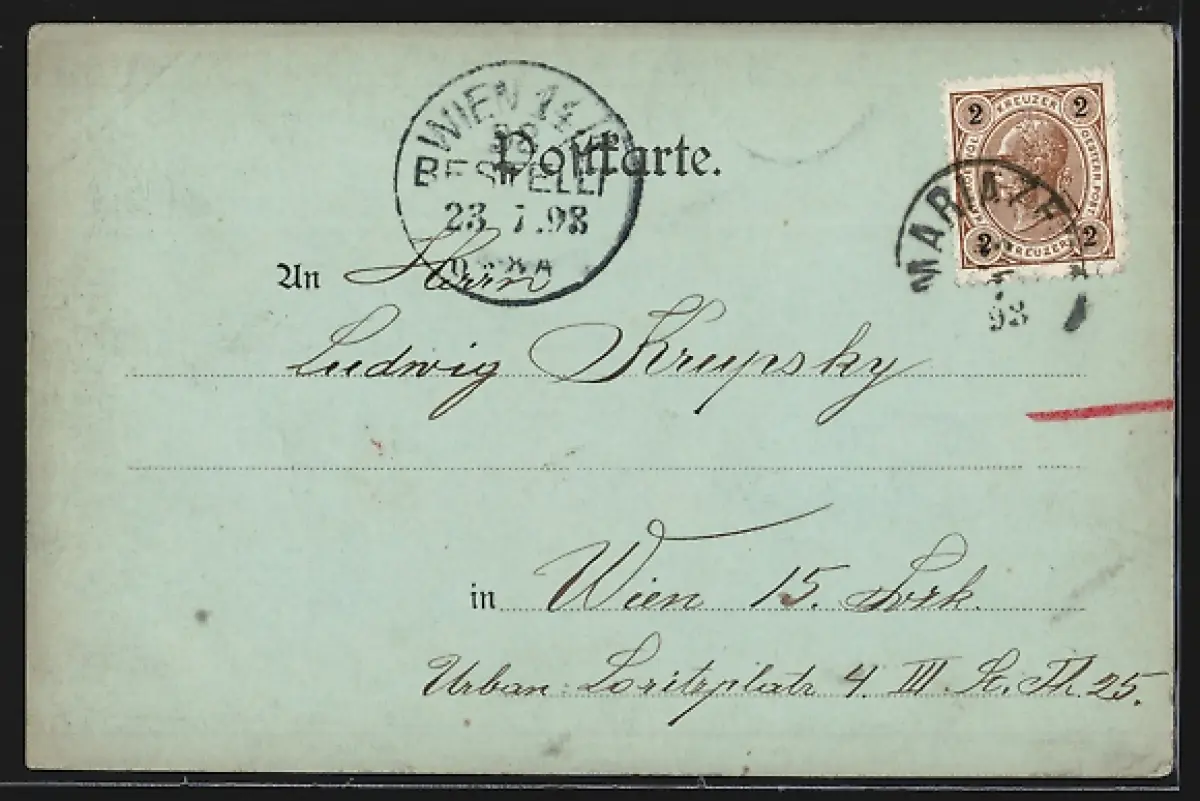 WIEN 14/1
BESTELLT
23. 7. 98
Postkarte.
2 KREUZER 2
2 KREUZER 2
MARIAZE
98
An Herrn
Ludwig Krupsky
in Wien 15. Bzrk.
Urban-Loritzplatz 4. III. St. Th. 25.